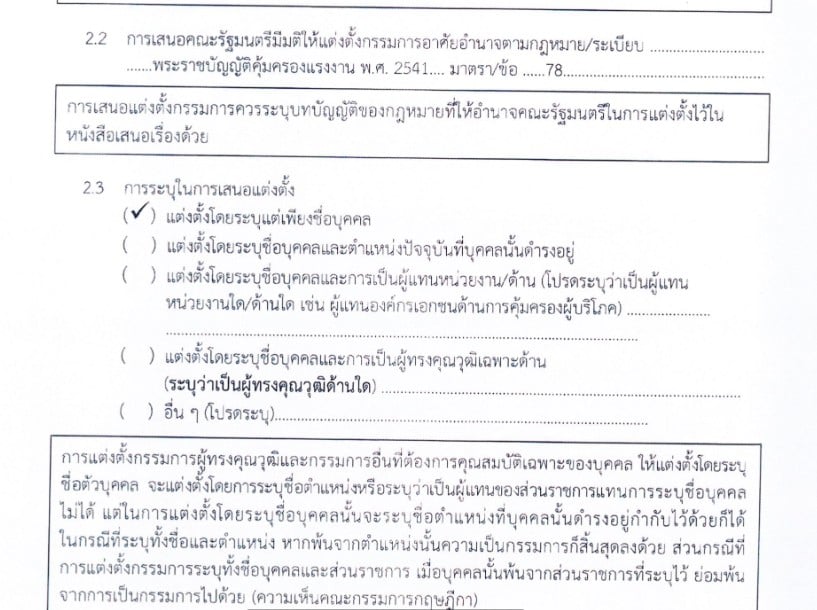 2.2 การเสนอคณะรัฐมนตรีมีมติให้แต่งตั้งกรรมการอาศัยอำนาจตามกฎหมาย/ระเบียบ ............................
.......พระราชบัญญัติคุ้มครองแรงงาน พ.ศ. 2541.... มาตรา/ข้อ ......78..................................................
การเสนอแต่งตั้งกรรมการควรระบุบทบัญญัติของกฎหมายที่ให้อำนาจคณะรัฐมนตรีในการแต่งตั้งไว้ใน
หนังสือเสนอเรื่องด้วย
2.3 การระบุในการเสนอแต่งตั้ง
(✓) แต่งตั้งโดยระบุแต่เพียงชื่อบุคคล
( ) แต่งตั้งโดยระบุชื่อบุคคลและตำแหน่งปัจจุบันที่บุคคลนั้นดำรงอยู่
( ) แต่งตั้งโดยระบุชื่อบุคคลและการเป็นผู้แทนหน่วยงาน/ด้าน (โปรดระบุว่าเป็นผู้แทน
หน่วยงานใด/ด้านใด เช่น ผู้แทนองค์กรเอกชนด้านการคุ้มครองผู้บริโภค) .....................
......................................................................................................................
( ) แต่งตั้งโดยระบุชื่อบุคคลและการเป็นผู้ทรงคุณวุฒิเฉพาะด้าน
(ระบุว่าเป็นผู้ทรงคุณวุฒิด้านใด) ..........................................................................................
( ) อื่น ๆ (โปรดระบุ)..............................................................................................
การแต่งตั้งกรรมการผู้ทรงคุณวุฒิและกรรมการอื่นที่ต้องการคุณสมบัติเฉพาะของบุคคล ให้แต่งตั้งโดยระบุ
ชื่อตัวบุคคล จะแต่งตั้งโดยการระบุชื่อตำแหน่งหรือระบุว่าเป็นผู้แทนของส่วนราชการแทนการระบุชื่อบุคคล
ไม่ได้ แต่ในการแต่งตั้งโดยระบุชื่อบุคคลนั้นจะระบุชื่อตำแหน่งที่บุคคลนั้นดำรงอยู่กำกับไว้ด้วยก็ได้
ในกรณีที่ระบุทั้งชื่อและตำแหน่ง หากพ้นจากตำแหน่งนั้นความเป็นกรรมการก็สิ้นสุดลงด้วย ส่วนกรณีที่
การแต่งตั้งกรรมการระบุทั้งชื่อบุคคลและส่วนราชการ เมื่อบุคคลนั้นพ้นจากส่วนราชการที่ระบุไว้ ย่อมพ้น
จากการเป็นกรรมการไปด้วย (ความเห็นคณะกรรมการกฤษฎีกา)